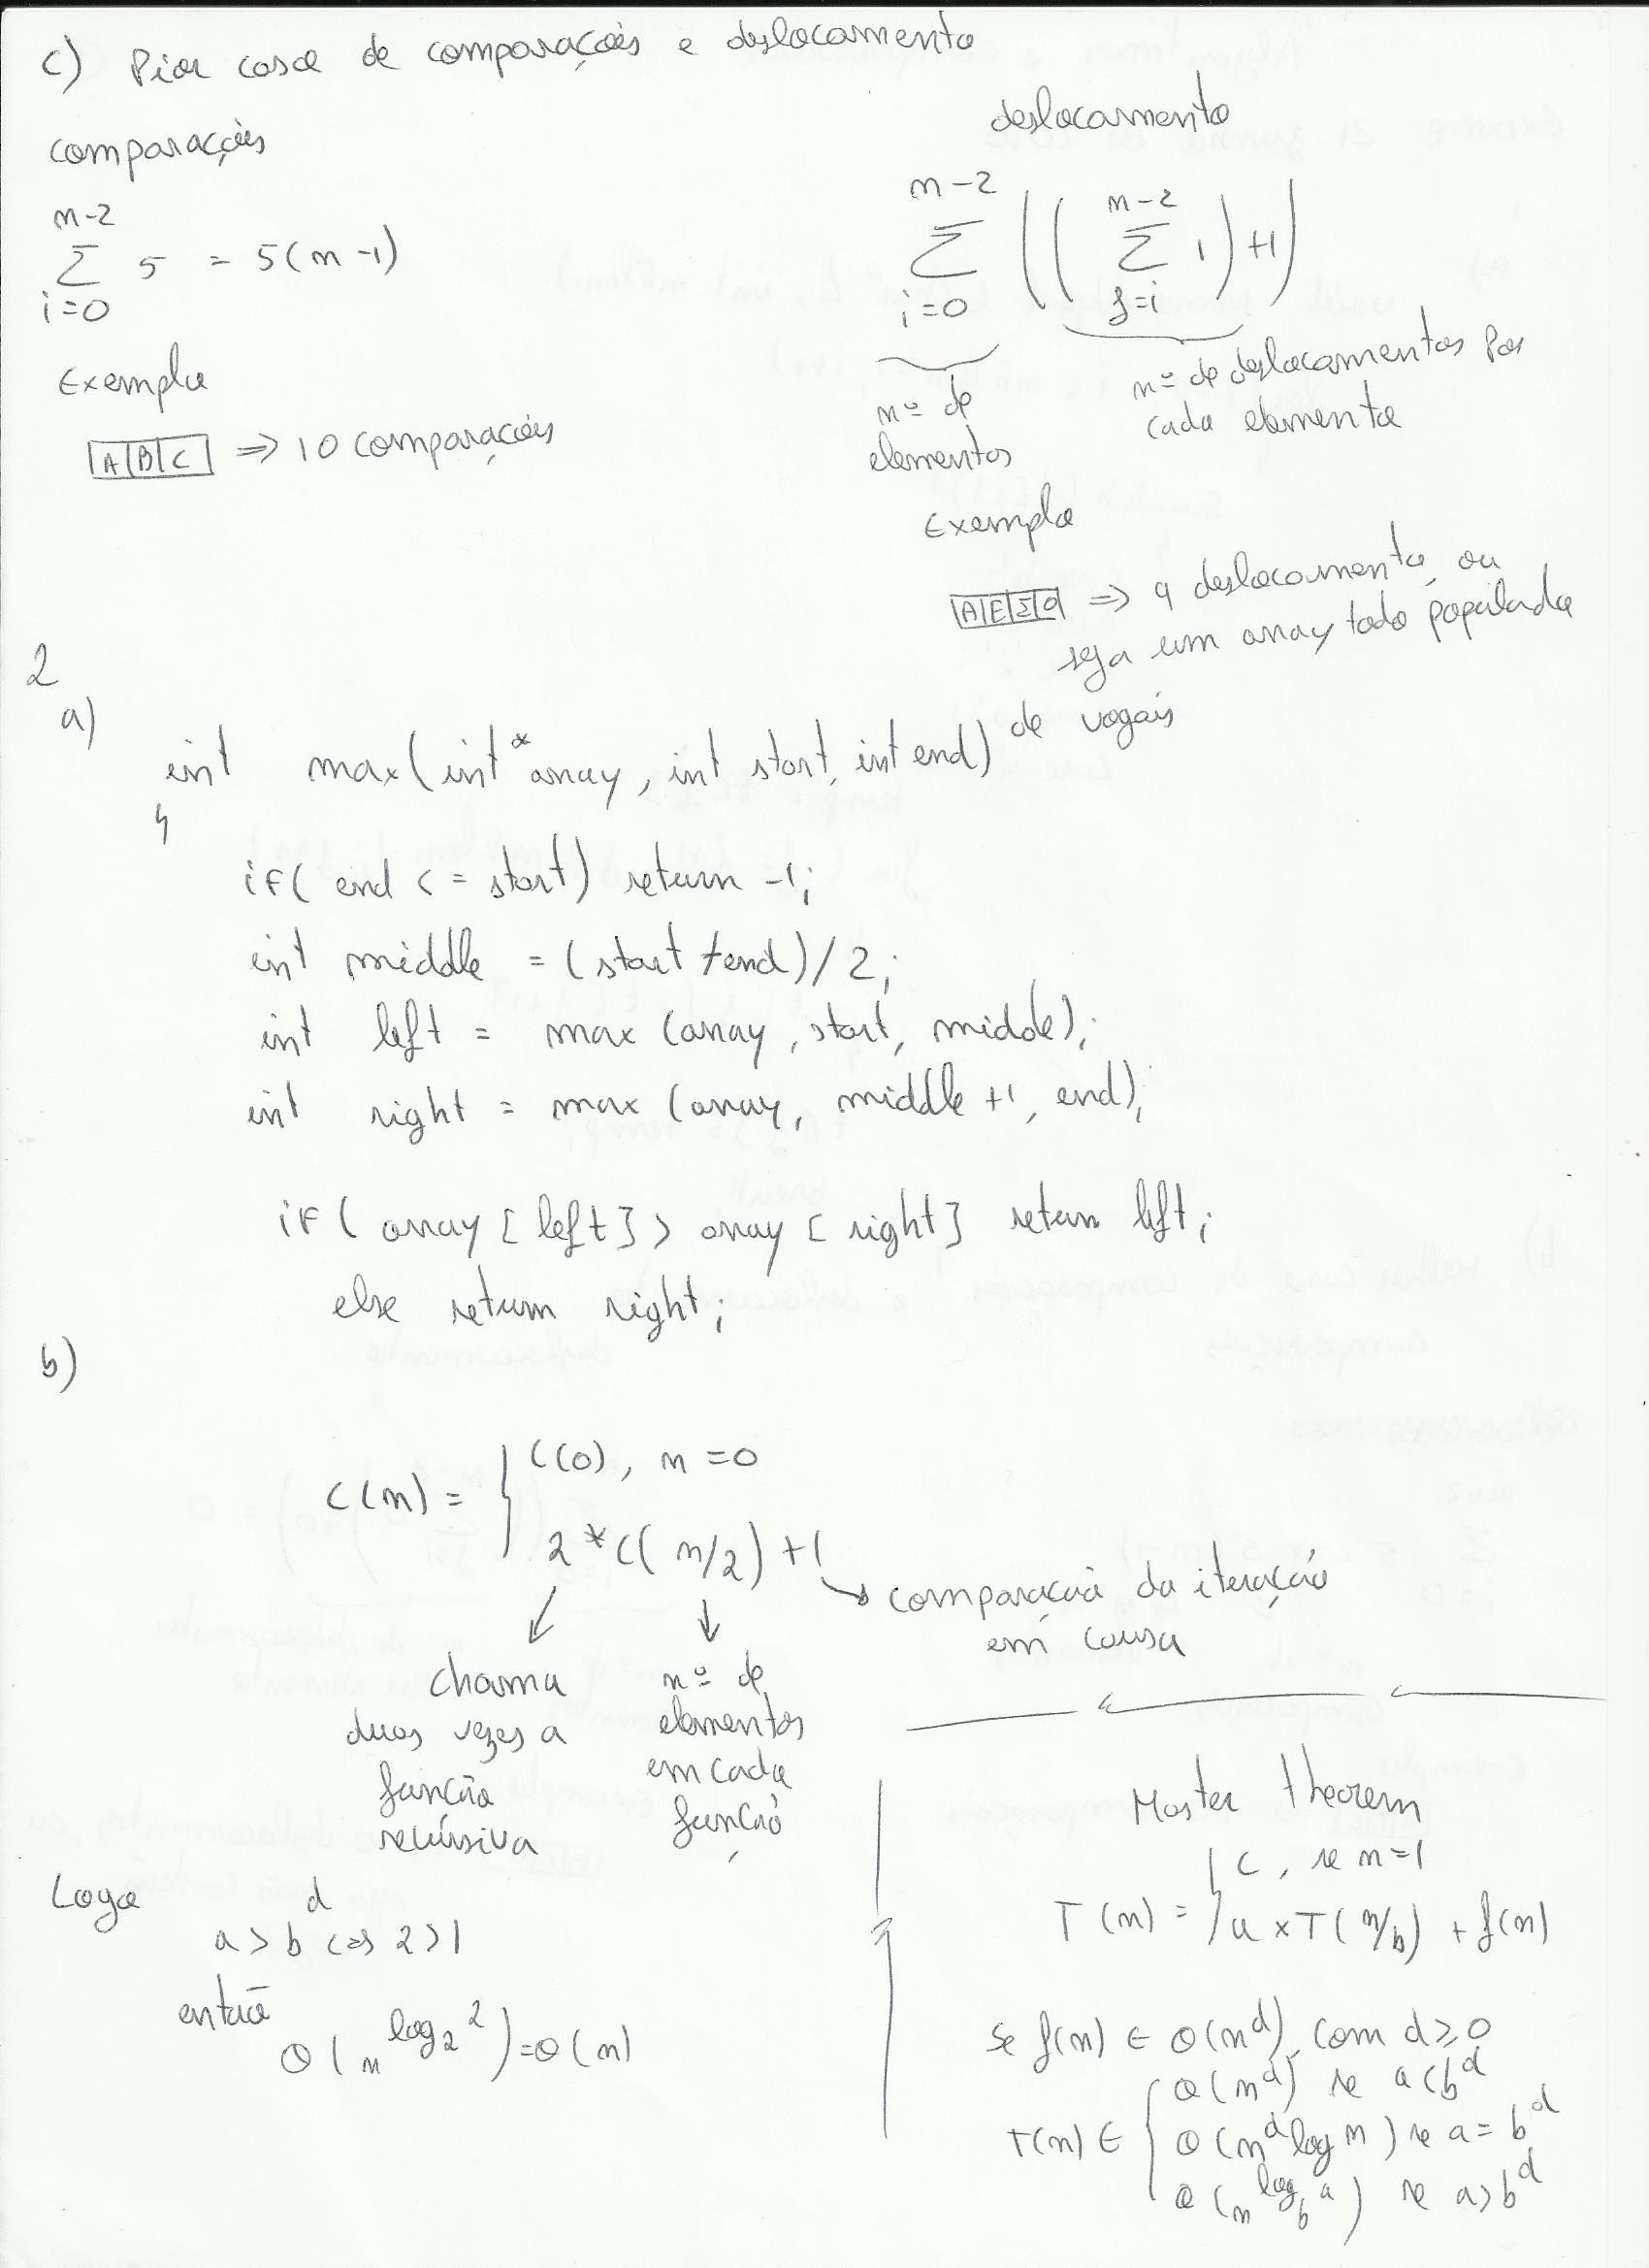 c) Pior caso de comparações e deslocamento
comparações
n-2
Σ 5 = 5(n-1)
i=0
Exemplo
|A|B|C| => 10 comparações
deslocamento
n-2
Σ ((
n-2
Σ 1)+1)
j=i
i=0
nº de elementos
nº de deslocamentos por
cada elemento
Exemplo
|A|E|I|O| => 9 deslocamento, ou
seja um array todo populado
de vogais
2
a)
int max(int* array, int start, int end)
{
if( end <= start) return -1;
int middle = (start + end)/2;
int left = max (array, start, middle);
int right = max (array, middle +1, end);
if( array [left] > array [right] return left;
else return right;
b)
C(n) = { C(0), n=0
2*C(n/2) +1
comparação da iteração
em causa
chama
duas vezes a
função
recursiva
nº de
elementos
em cada
função
Logo
a > b^d <=> 2>1
então
Θ(n^log₂2)=Θ(n)
Master theorem
T(n) = { c, se n=1
a x T(n/b) + f(n)
se f(n) ∈ Θ(n^d), com d ≥ 0
T(n) ∈ { Θ(n^d) se a<b^d
Θ(n^d log n) se a = b^d
Θ(n^log_b a) se a>b^d